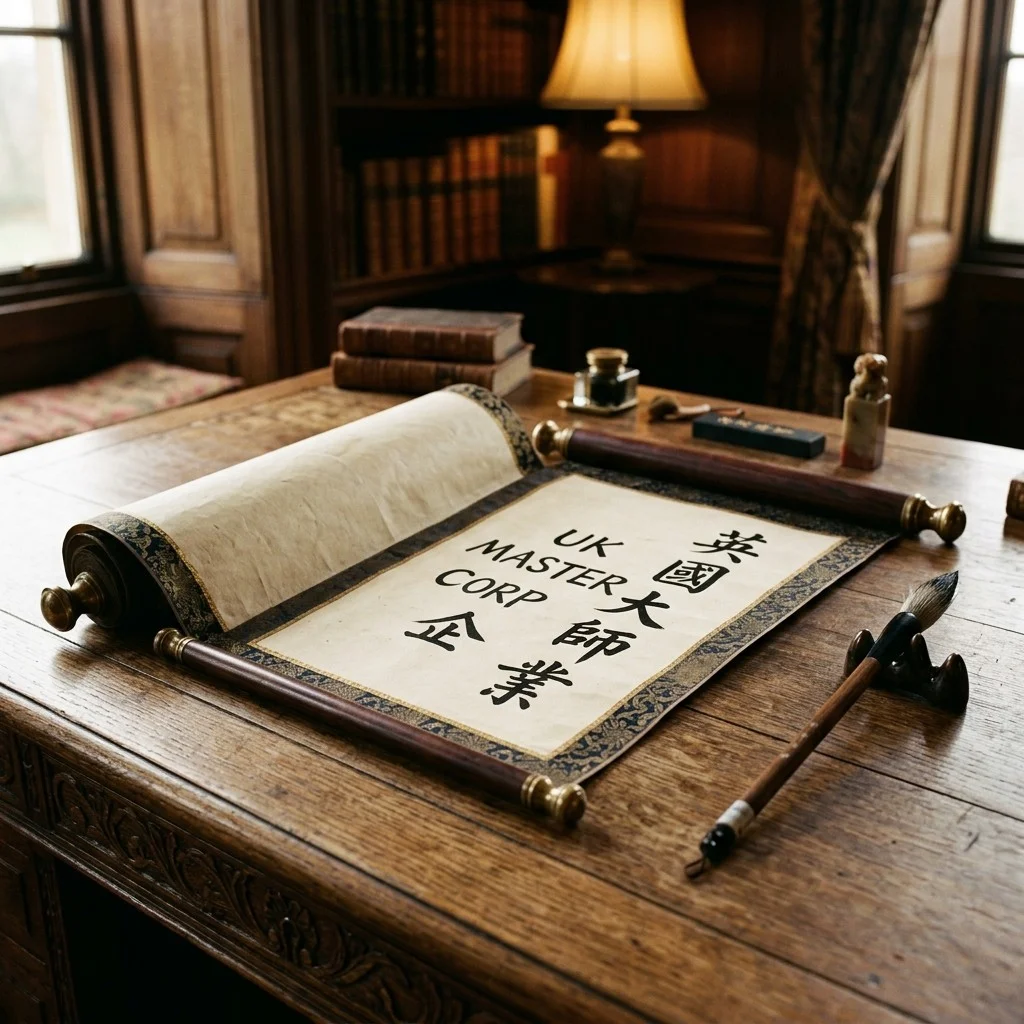 英國大師業
UK
MASTER
CORP
企